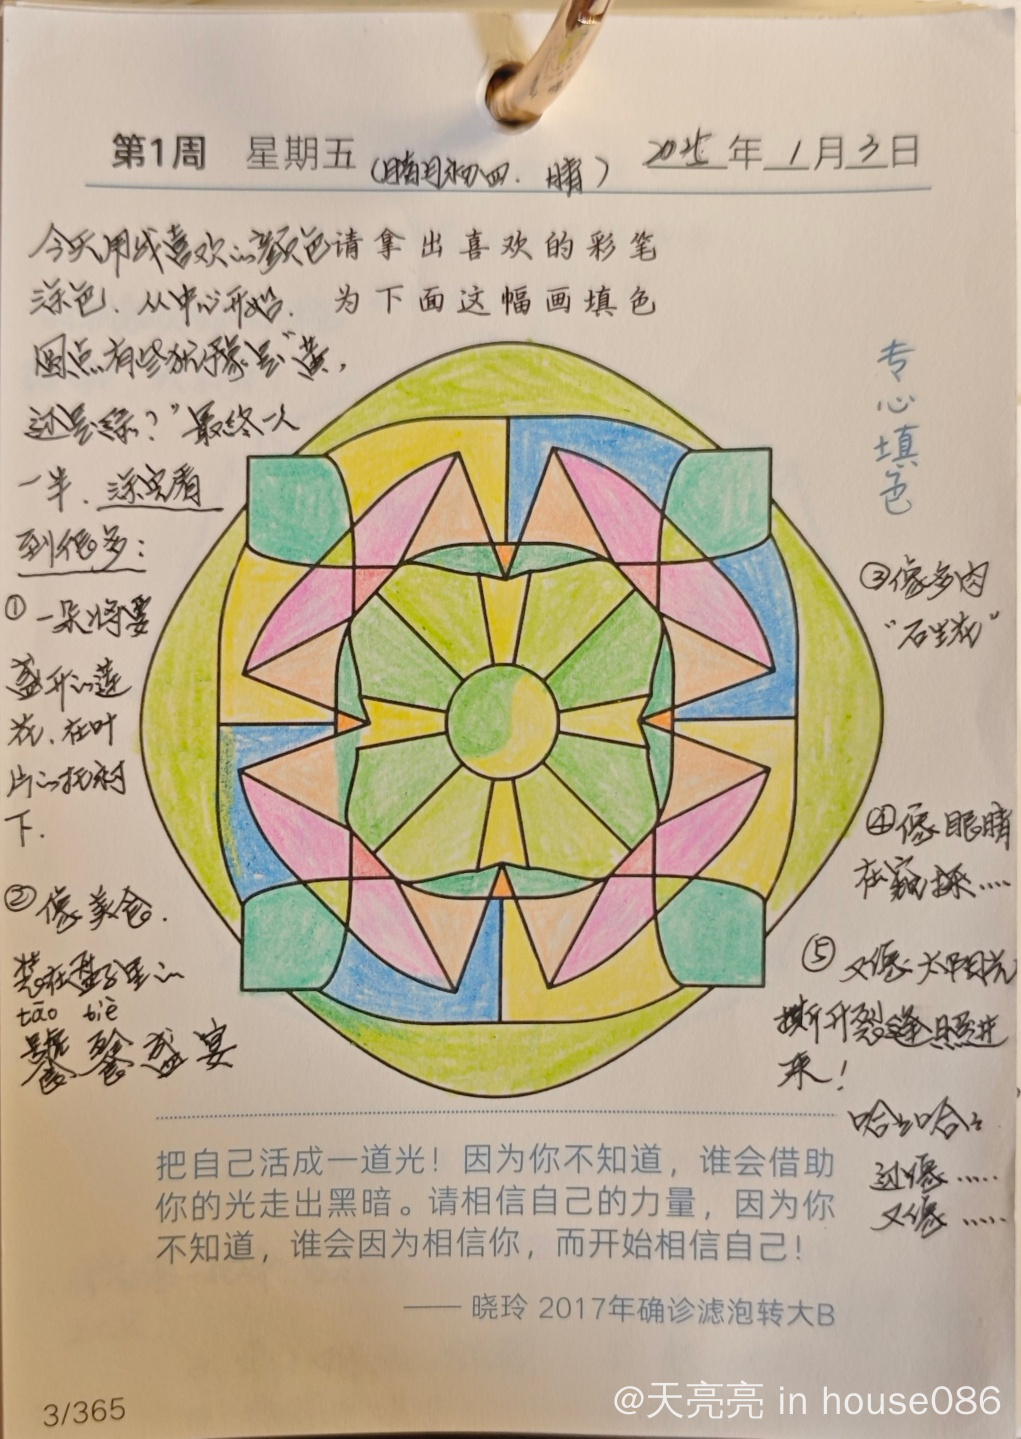 第1周 星期五 (腊月初四. 晴) 2025年1月3日
今天用我喜欢的颜色
涂色. 从中心开始.
圆点有些犹豫是“黄,
还是绿?”最终一人
一半. 涂完看
到很多:
请拿出喜欢的彩笔
为下面这幅画填色
专心填色
①一朵将要
盛开的莲
花. 在叶
片的托衬
下.
②像美食.
装在盘子里的
tāo tiè
饕餮盛宴
③像多肉
“石生花”
④像眼睛
在窥探....
⑤又像太阳光
撕开裂缝照进
来!
哈哈哈哈
还像.....
又像.....
把自己活成一道光!因为你不知道,谁会借助
你的光走出黑暗。请相信自己的力量,因为你
不知道,谁会因为相信你,而开始相信自己!
—— 晓玲 2017年确诊滤泡转大B
3/365
@天亮亮 in house086